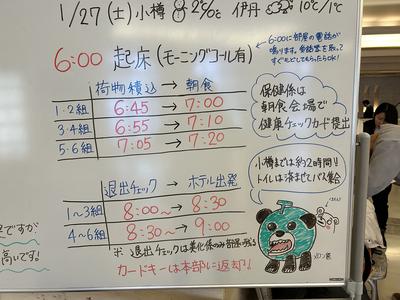 1/27(土)小樽 2℃/0℃ 伊丹 10℃/1℃
6:00 起床(モーニングコール有)
6:00に部屋の電話が
鳴ります。受話器を取って
すぐもどしてもらったらOK!
荷物積込 → 朝食
1・2組 6:45 → 7:00
3・4組 6:55 → 7:10
5・6組 7:05 → 7:20
保健係は
朝食会場で
健康チェックカード提出
退出チェック → ホテル出発
1~3組 8:00~ → 8:30
4~6組 8:30~ → 9:00
※ 退出チェックは美化係のみ部屋に残る
カードキーは本部に返却!
小樽までは約2時間!!
トイレは済ませてバス集合
ですが
高いです!